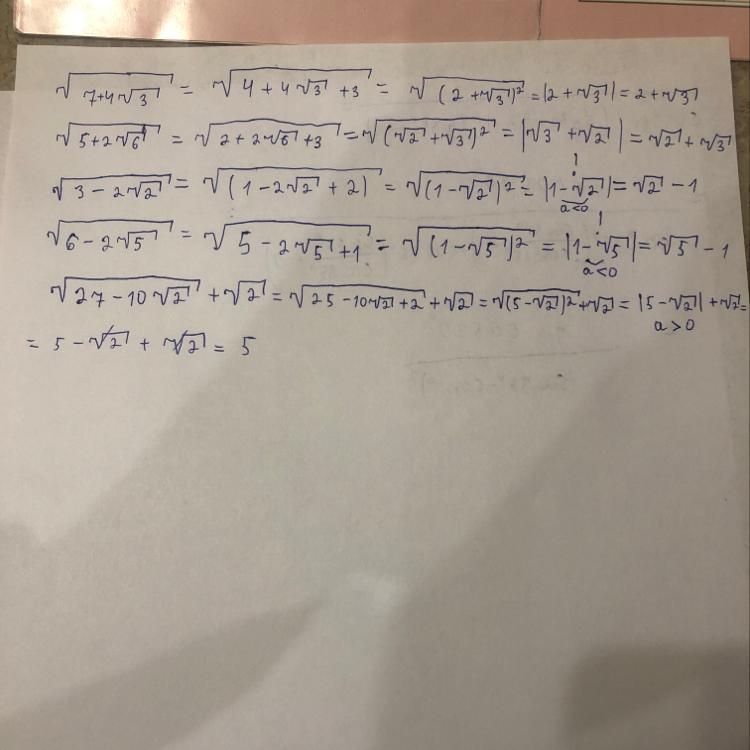 √(7+4√3) = √(4+4√3+3) = √((2+√3)²) = |2+√3| = 2+√3
√(5+2√6) = √(2+2√6+3) = √((√2+√3)²) = |√3+√2| = √2+√3
!
√(3-2√2) = √((1-2√2+2)) = √((1-√2)²) = |1-√2| = √2-1
a<0
!
√(6-2√5) = √(5-2√5+1) = √((1-√5)²) = |1-√5| = √5-1
a<0
√(27-10√2) + √2 = √(25-10√2+2) + √2 = √((5-√2)²) + √2 = |5-√2| + √2 =
a>0
= 5-√2 + √2 = 5